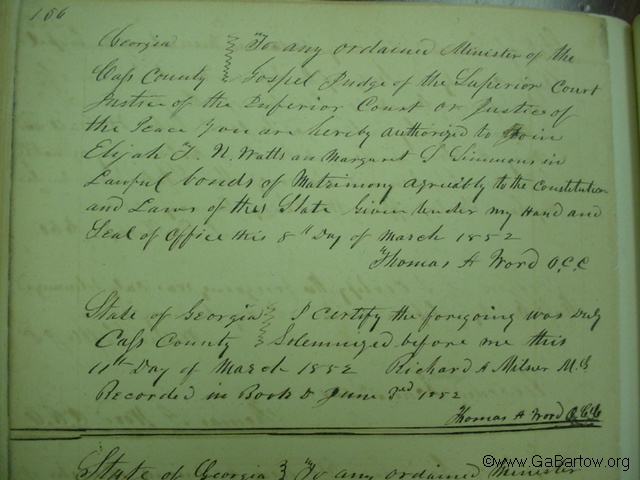 156
Georgia To any ordained Minister of the
Cass County Gospel Judge of the Superior Court
Justice of the Inferior Court or Justice of
the Peace You are hereby authorized to Join
Elijah T. N. Watts an Margaret S Simmons in
Lawful bonds of Matrimony agreeably to the Constitution
and Laws of this State Given under my Hand and
Seal of Office this 8th Day of March 1852
Thomas A Word O,C,C
State of Georgia I certify the foregoing was Duly
Cass County Solemnized before me this
11th Day of March 1852 Richard A Milner M.G
Recorded in Book D June 3rd 1852
Thomas A Word C.C.O
State of Georgia To any ordained Minister
©www.GaBartow.org